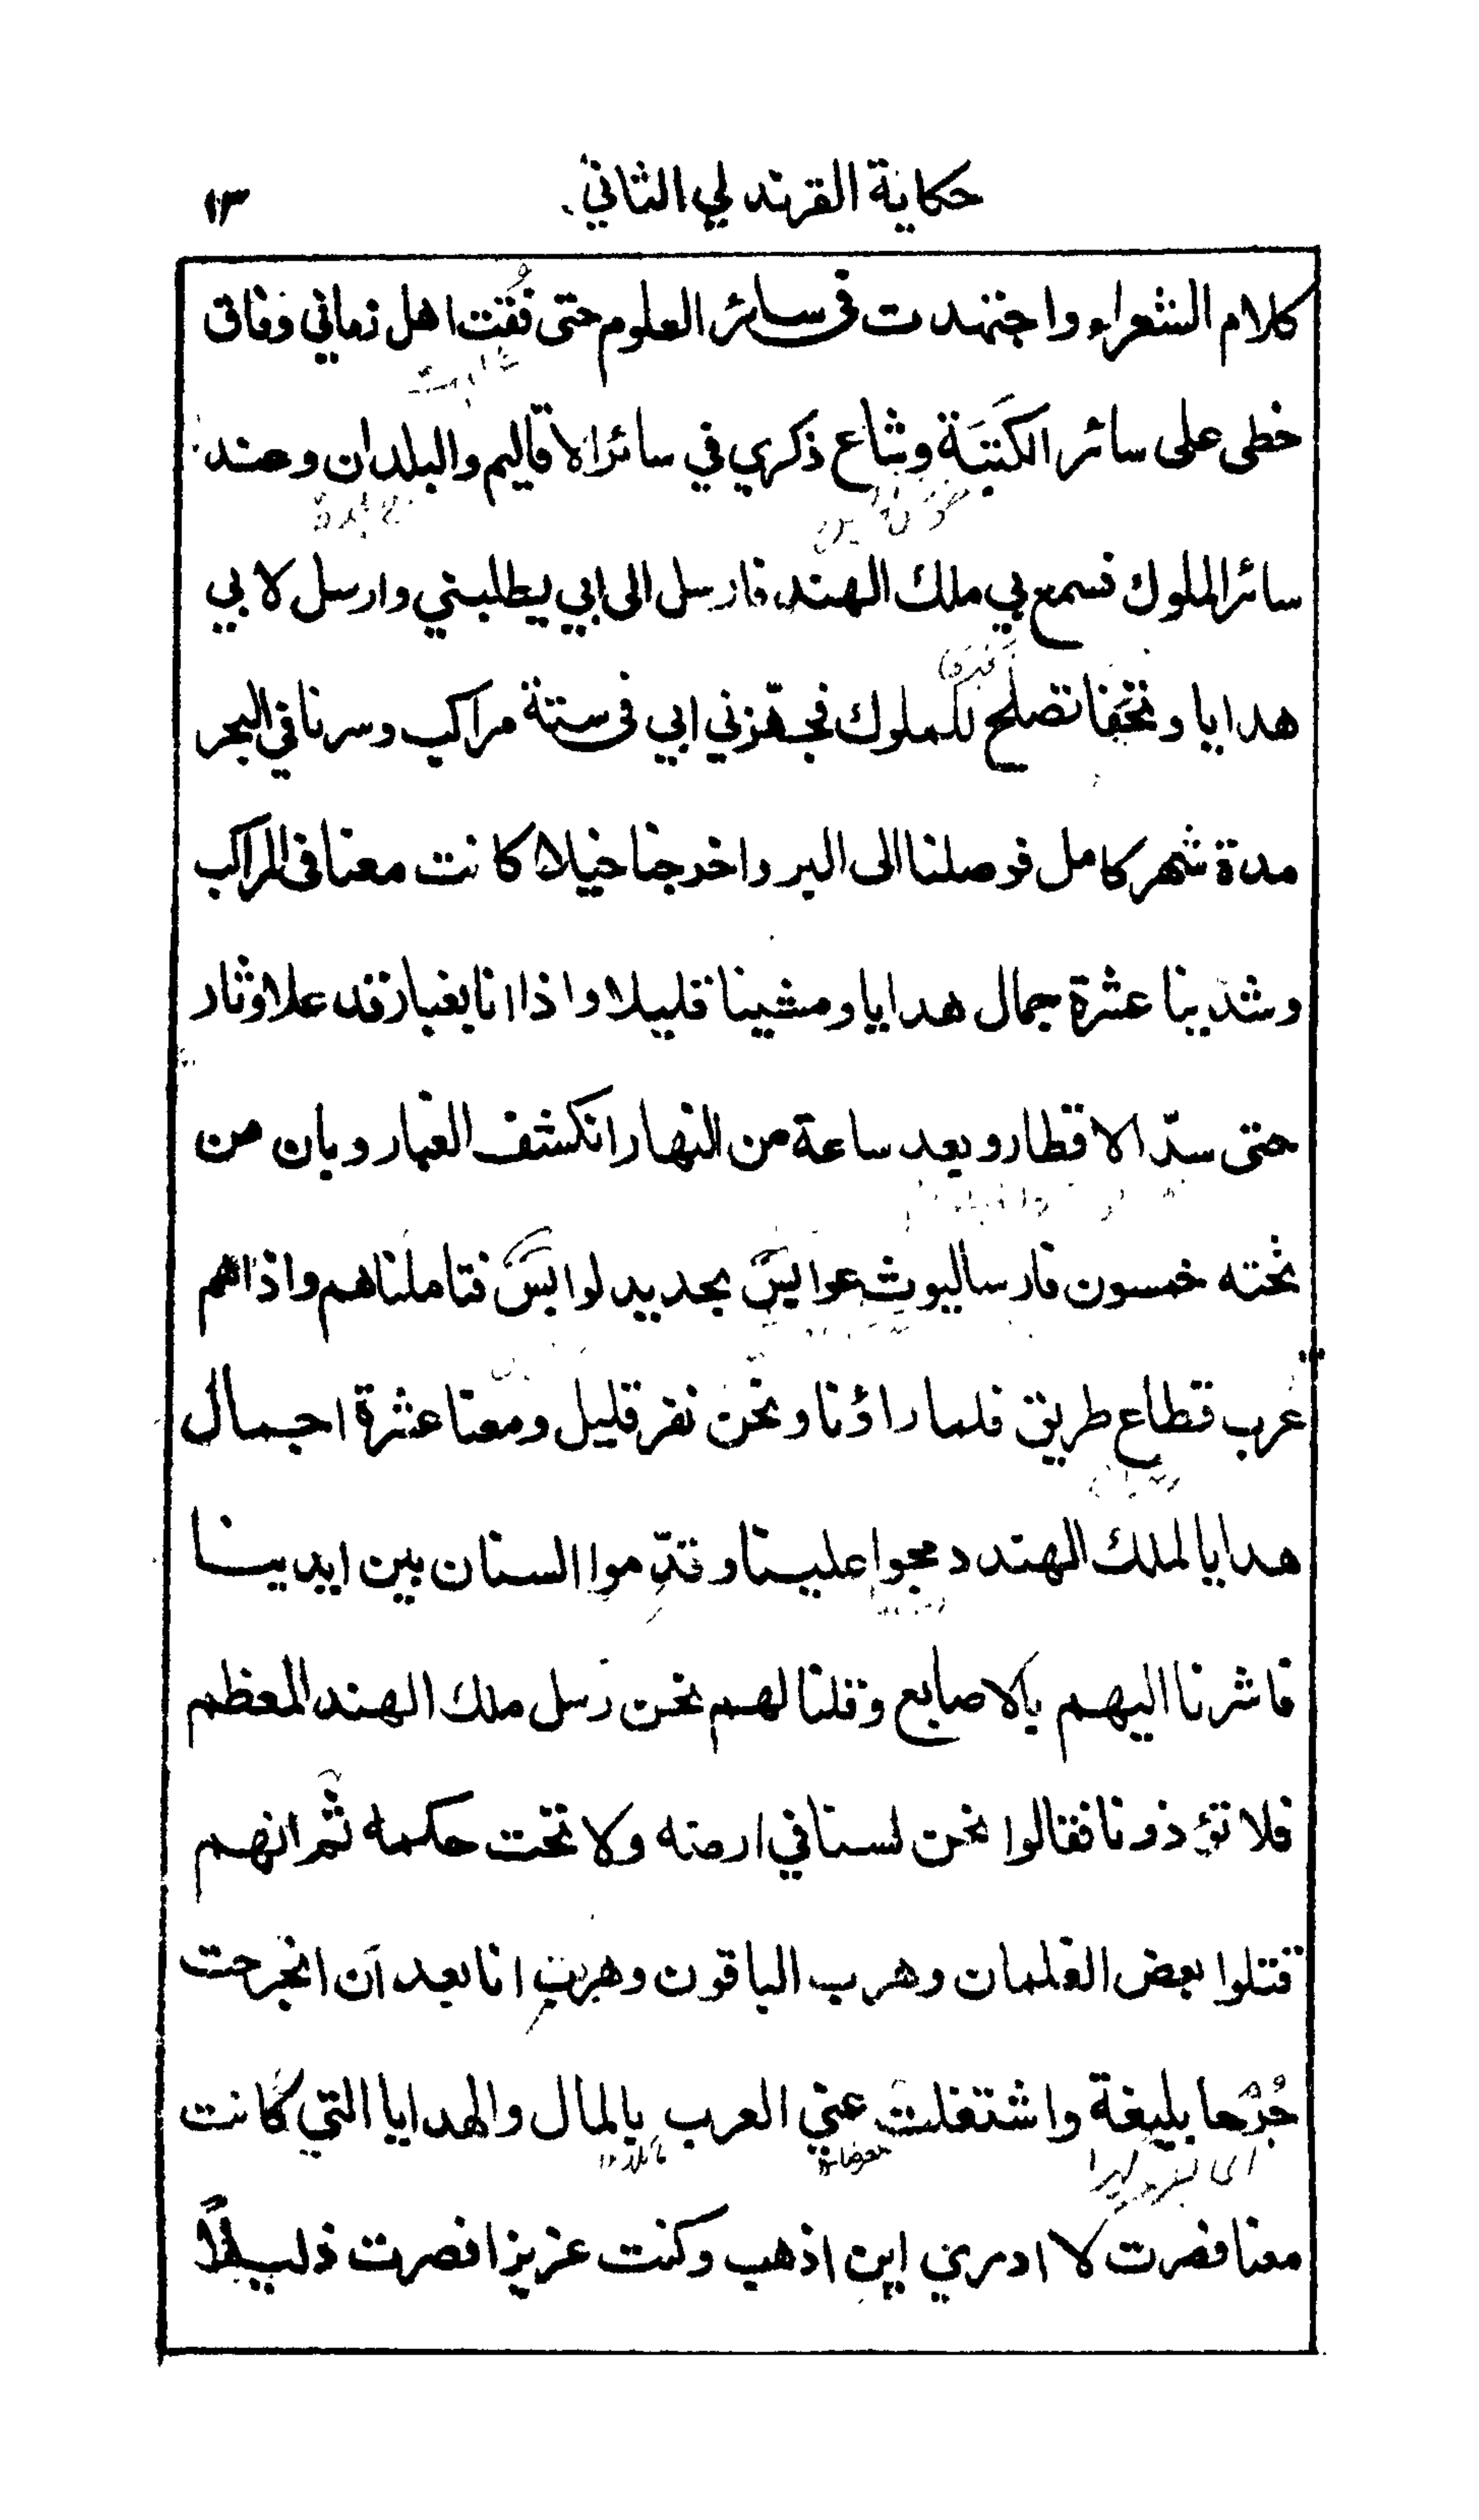 حكاية القرندلي الثاني
١٣
كلام الشعراء واجتهدت في سائر العلوم حتى فُقت اهل زماني وفاق
خطي على سائر الكتبَة وشاع ذكري في سائر الاقاليم والبلدان وعند
سائر الملوك فسمع بي ملك الهند فارسل الى ابي يطلبني وارسل لابي
هدايا وتحفا تصلح للملوك فجهّزني ابي في ستة مراكب وسرنا في البحر
مدة شهر كامل فوصلنا الى البر واخرجنا خيلا كانت معنا في المراكب
وشدّينا عشرة جمال هدايا ومشينا قليلا واذا انا بغبار قد علا وثار
حتى سدّ الاقطار وبعد ساعة من النهار انكشف الغبار وبان من
تحته خمسون فارسا ليوث عوابسَ بحديد لوابسَّ فتاملناهم واذا هم
عرب قطاع طريق فلما راؤنا ونحن نفر قليل ومعنا عشرة اجمال
هدايا لملك الهند دمجوا علينا وقدّموا السنان بين ايدينا
فاشرنا اليهم بالاصابع وقلنا لهم نحن رسل ملك الهند المعظم
فلا تؤذونا فقالوا نحن لسنا في ارضه ولا تحت حكمه ثم انهم
قتلوا بعض الغلمان وهرب الباقون وهربت انا بعد ان انجرحت
جُرْحا بليغة واشتغلت عني العرب بالمال والهدايا التي كانت
معنا فصرت لا ادري اين اذهب وكنت عزيزا فصرت ذليلاً